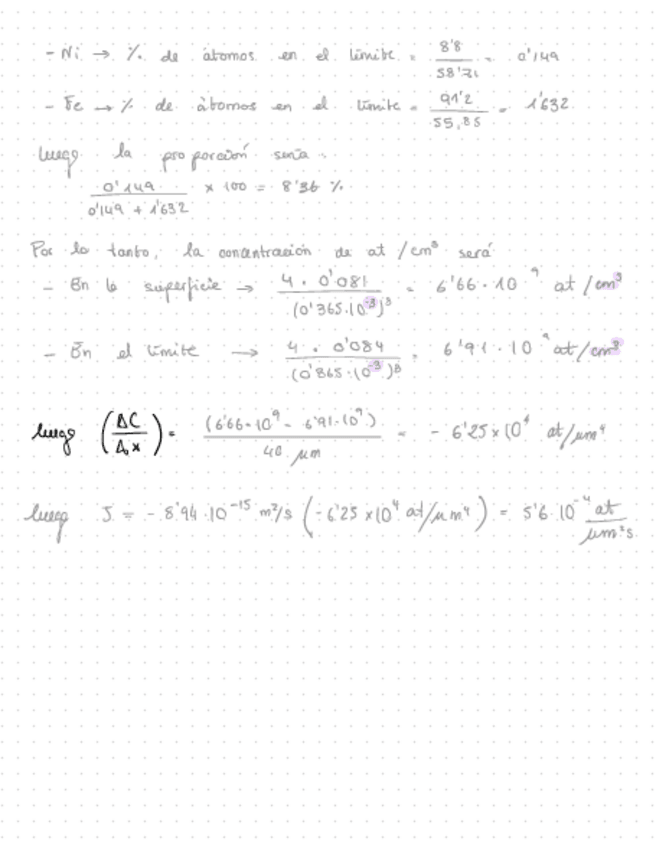 - Ni → % de átomos en el límite = 8'8 / 58'71 = 0'149
- Fe → % de átomos en el límite = 91'2 / 55,85 = 1'632
luego la proporción sería:
0'149 / (0'149 + 1'632) × 100 = 8'36 %
Por lo tanto, la concentración de at/cm³ será
- En la superficie → 4 · 0'081 / (0'365·10⁻³)³ = 6'66 · 10⁹ at/cm³
- En el límite → 4 · 0'084 / (0'365·10⁻³)³ = 6'91 · 10⁹ at/cm³
luego (ΔC / Δx) = (6'66·10⁹ - 6'91·10⁹) / 40 μm = - 6'25 × 10⁴ at/μm⁴
luego J = - 8'94·10⁻¹⁵ m²/s (-6'25 × 10⁴ at/μm⁴) = 5'6·10⁻⁴ at / μm²s